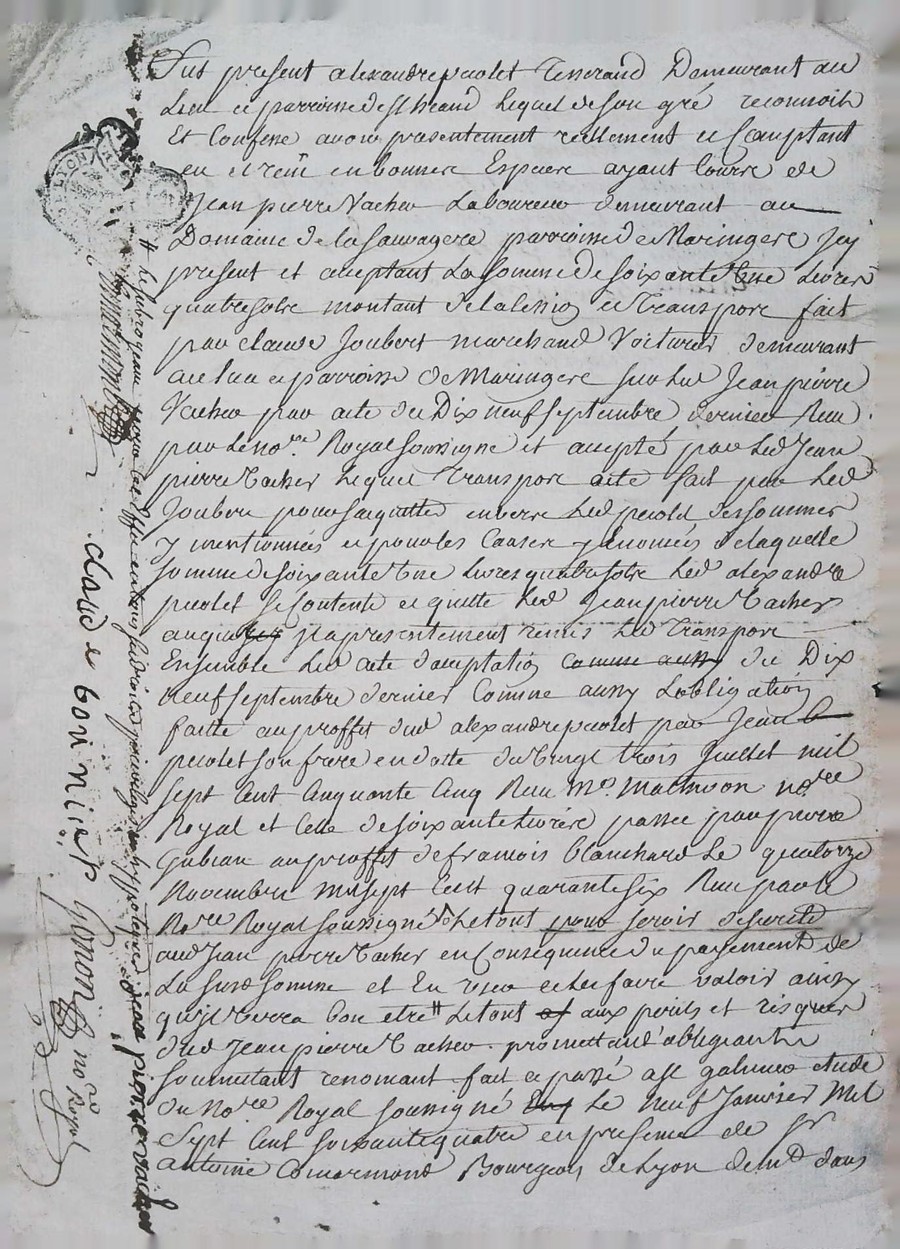 Fut present alexandre peolet Tisserand Demeurant au
Lieu et parroisse de st heand lequel de son gré reconnoit
Et Confesse avoir presentement reellement et Comptant
eu et reçu en bonnes Especes ayant Cours de
Jean pierre Vacher Laboureur demeurant au
Domaine de la sauvagere parroisse de Maringere Icy
present et acceptant La somme de soixante Une Livres
quatre sols montant de la cession et Transport fait
par claude Joubert marchand Voiturier demeurant
au lieu et parroisse de Maringere sur led Jean pierre
Vacher par acte du Dix neuf septembre dernier Reçu
par le nore Royal soussigné et accepté par led Jean
pierre Vacher lequel Transport acte fait par led
Joubert pour s'aquitter envers led peolet des sommes
y mentionnées et pour les Causes y denomées de laquelle
somme de soixante Une Livres quatre sols led alexandre
peolet se Contente et quitte led Jean pierre Vacher
auquel il a presentement remis led Transport
Ensemble led acte d'acceptation comme aussy du Dix
neuf septembre dernier Comme aussy L'obligation
faitte au proffit dud alexandre peolet par Jean
peolet son frere en datte du Vingt trois Juillet mil
sept Cent Cinquante Cinq Reçu me nore
Royal et Celle de soixante Livres passée par pierre
au proffit de francois blanchard Le quatorze
Novembre mil sept Cent quarante six Reçu par le
Nore Royal soussigné Le tout pour servir de sureté
aud Jean pierre Vacher en Consequence du payement de
La susd somme et En user et les faire valoir ainsy
qu'il verra bon etre # Le tout aux perils et risques
dud Jean pierre Vacher promettant obligeant
soumettant renonçant fait et passé a st galmier etude
du Nore Royal soussigné Le neuf Janvier Mil
Sept Cent soixante quatre en presence de sr
Antoine Comarmond Bourgeois de Lyon demt dans
# Le subrogeant pour cet effet en tous ses droits privileges et hypoteques
jean pierre vacher
Comarmond
claude bouinier
Gonon nore Royal
LYON